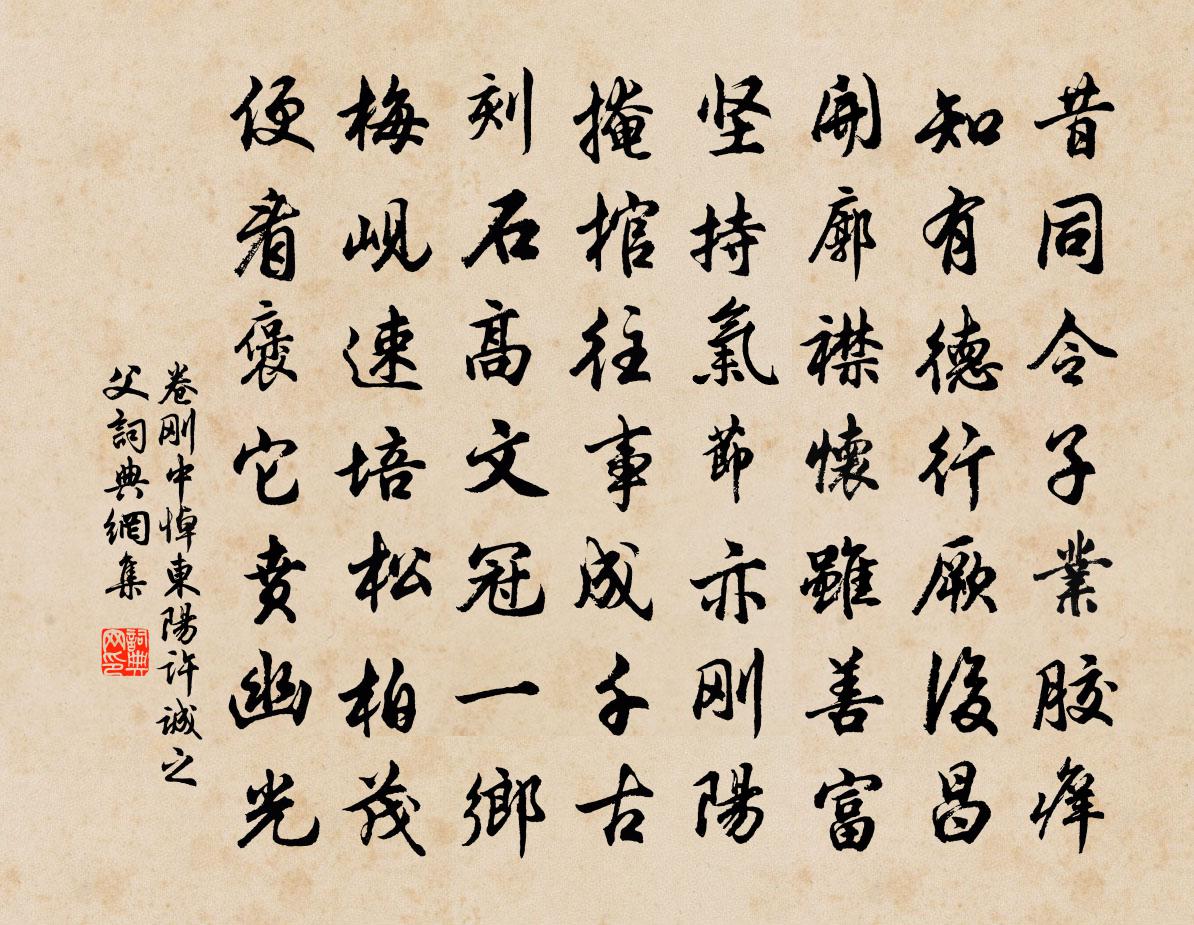 昔同令子業膠庠
知有德行厥後昌
開廓襟懷雖善富
坚持氣節亦刚陽
掩棺往事成千古
刻石高文冠一鄉
梅峴速培松柏茂
便看褒它賁幽光
卷刚中悼東陽許誠之
父詞典網集
詞典网印